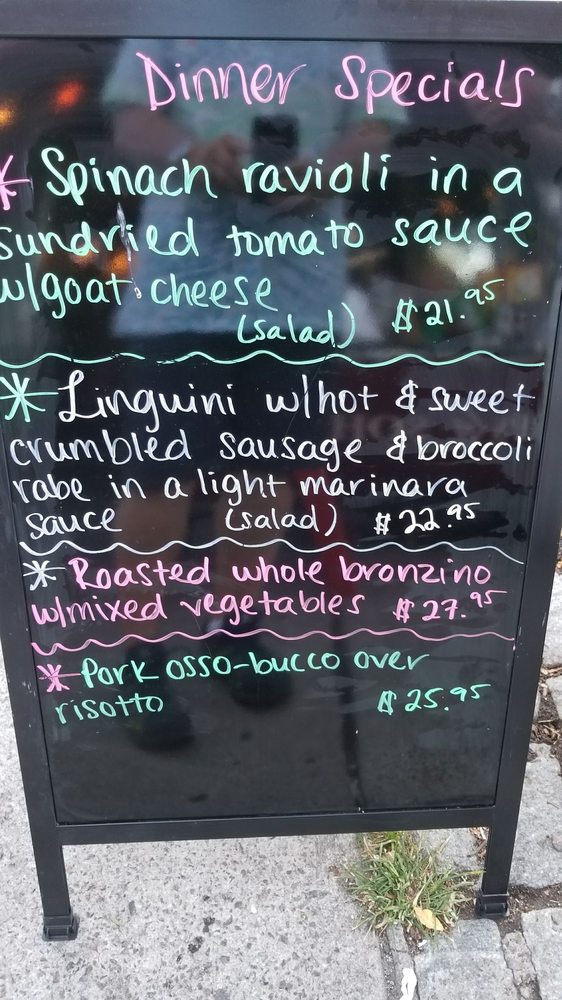 Dinner Specials
* Spinach ravioli in a
sundried tomato sauce
w/goat cheese
(salad) $21.95
* Linguini w/hot & sweet
crumbled sausage & broccoli
rabe in a light marinara
sauce (salad) $22.95
* Roasted whole bronzino
w/mixed vegetables $27.95
* Pork osso-bucco over
risotto $25.95